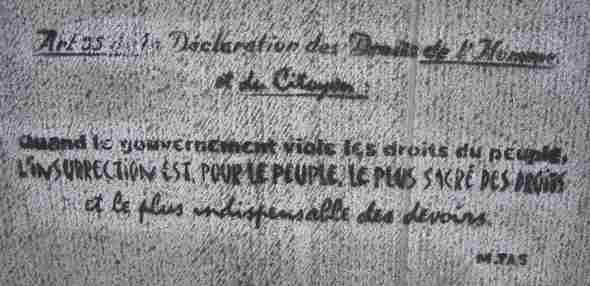 Art 35 de la Déclaration des Droits de l'Homme
et du Citoyen :
Quand le gouvernement viole les droits du peuple,
L'INSURRECTION EST, POUR LE PEUPLE, LE PLUS SACRÉ DES DROITS
et le plus indispensable des devoirs.
M.TAS